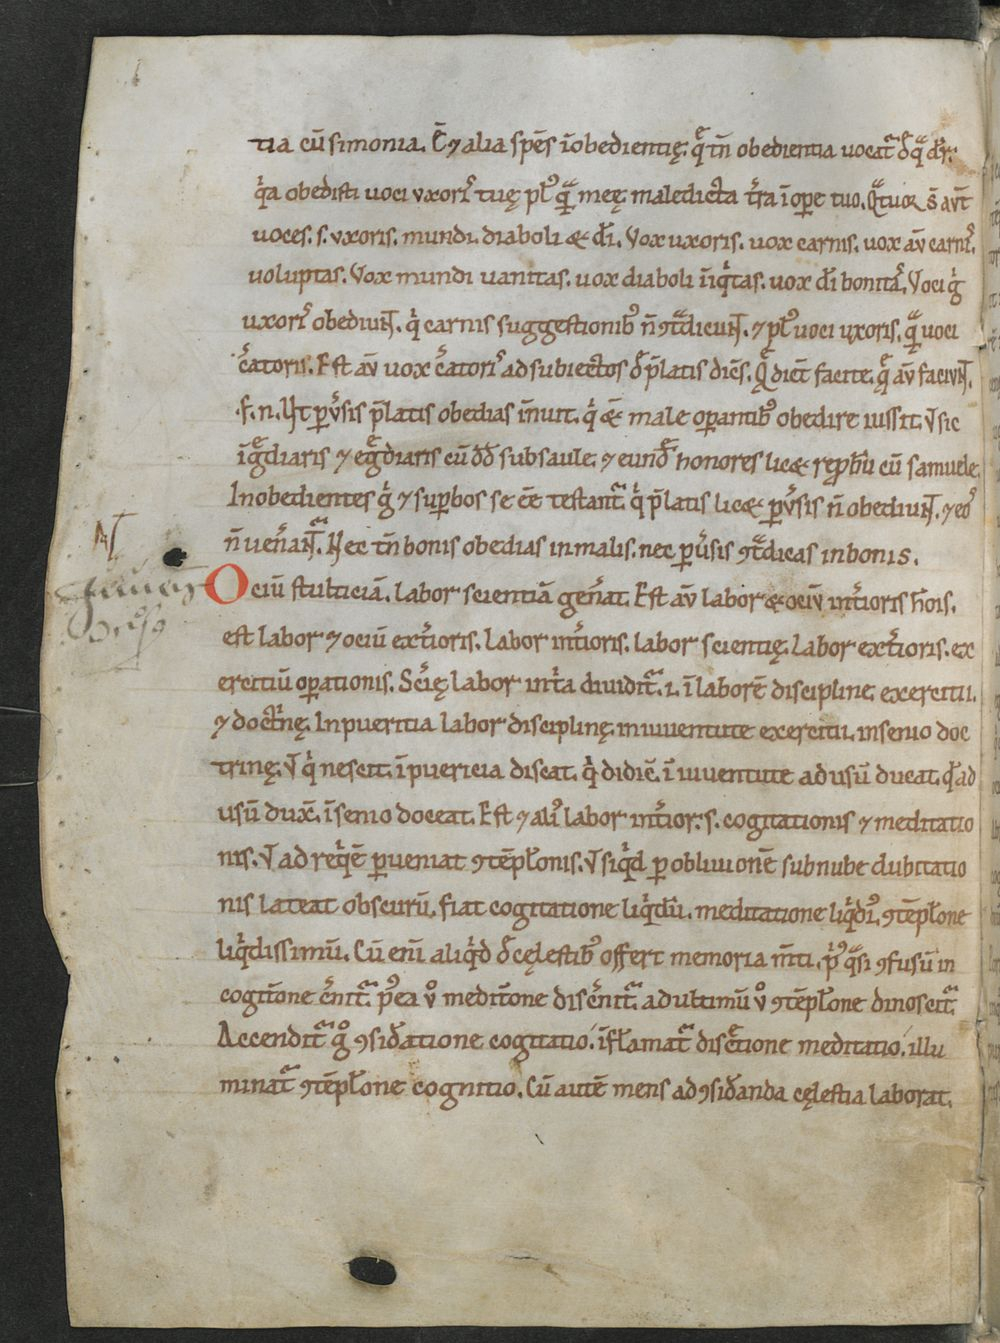 tia cū simonia. Ē ⁊ alia spēs īobedientię. q̄ tn̄ obedientia uocat̄ de q̄ dr̄.
q̇a obedisti uoci uxor̄ tuę pl᷒ q̄ meę. maledicta t̄ra ī oꝑe tuo. Q̄tuor s̄ aut̄
uoces. s. uxoris. mundi. diaboli & dī. Vox uxoris. uox carnis. uox aū carn̄.
uoluptas. Vox mundi uanitas. uox diaboli īiq̇tas. uox dī bonitas̄. Voci g̊
uxor̄ obediunt. q̇ carnis suggestionib᷒ n̄ ꝯt̄dicunt. ⁊ pl᷒ uoci uxoris. q̄ uoci
c̄atoris. Est aū uox c̄ator̄ ad subiectos de p̄latis dicēs. Q̄ dicūt facite. q̄ aū faciunt.
f. n. Ut ꝑūsis p̄latis obedias īnuit. q̇ & male oꝑantib᷒ obedire iussit. Vsic
subsaule. ⁊ honores licet cū samuele.
Inobedientes g̊ ⁊ suꝑbos se ēē testant̄. q̇ p̄latis licet ꝑūsis n̄ obediunt. ⁊ eos
n̄ uen̄ant̄. Nec tn̄ bonis obedias in malis. nec ꝑūsis ꝯt̄dicas in bonis.
Ociū stulticiā. labor scientiā gen̄at. Est aū labor & ociū int̄ioris hōis.
est labor ⁊ ociū ext̄ioris. Labor int̄ioris. labor scientię. Labor ext̄ioris. ex
ercitiū oꝑationis. Sc̄ię labor int̄a diuidit̄. i. ī laborē discipline. exercitii.
⁊ doct̄nę. In pueritia labor disciplinę. in iuuentute exercitii. in senio doc
trinę. V q̇ nescit. ī puericia discat. q̇ didic̄. ī iuuentute ad usū ducat. q̇d ad
usū dux̄. ī senio doceat. Est ⁊ ali᷒ labor int̄ior. s. cogitationis ⁊ meditatio
nis. V ad req̇ē ꝑueniat ꝯtēpl̄onis. Vsiq̇d ꝑ obliuionē sub nube dubitatio
nis lateat obscurū. fiat cogitatione liq̇dū. meditatione liq̇di᷒. ꝯtēpl̄one
liq̇dissimū. Cū enī aliq̇d de cęlestib᷒ offert memoria m̄ti. p̄᷒ q̄si ꝯfusū in
cogit̄one c̄nit̄. p̄ea ů medit̄one disc̄nit̄. ad ultimū ů ꝯtēpl̄one dinoscit̄.
Accendit̄ g̊ ꝯsid̄atione cogitatio. īflamat̄ disc̄tione meditatio. illu
minat̄ ꝯtēpl̄one cognitio. Cū autē mens ad ꝯsid̄anda cęlestia laborat.